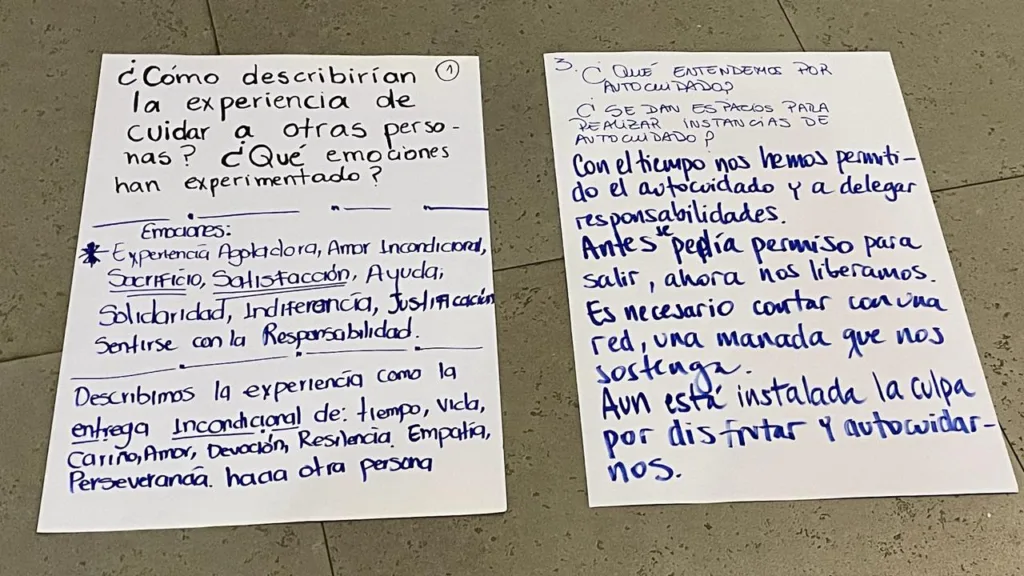 ¿Cómo describirían ①
la experiencia de
cuidar a otras perso-
nas? ¿Qué emociones
han experimentado?
Emociones:
* Experiencia Agotadora, Amor Incondicional,
Sacrificio, Satisfacción, Ayuda,
Solidaridad, Indiferencia, Justificación
Sentirse con la Responsabilidad.
Describimos la experiencia como la
entrega Incondicional de: tiempo, vida,
Cariño, Amor, Devoción, Resilencia. Empatía,
Perseverancia. hacia otra persona
3. ¿QUÉ ENTENDEMOS POR
AUTOCUIDADO?
¿SE DAN ESPACIOS PARA
REALIZAR INSTANCIAS DE
AUTOCUIDADO?
Con el tiempo nos hemos permiti-
do el autocuidado y a delegar
responsabilidades.
Antes se pedía permiso para
salir, ahora nos liberamos.
Es necesario contar con una
red, una manada que nos
sostenga.
Aun está instalada la culpa
por disfrutar y autocuidar-
nos.